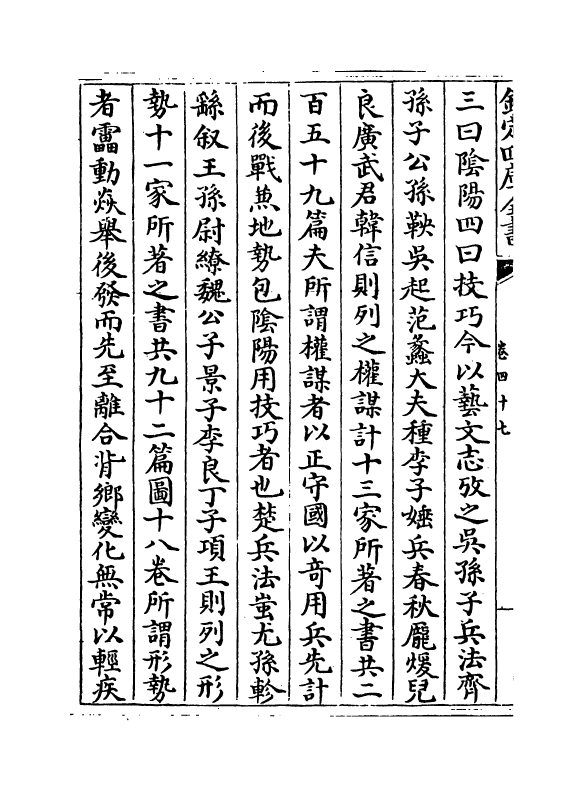 欽定四庫全書
卷四十七
三曰陰陽四曰技巧今以藝文志攷之吳孫子兵法齊
孫子公孫鞅吳起范蠡大夫種李子娷兵春秋龐煖兒
良廣武君韓信則列之權謀計十三家所著之書共二
百五十九篇夫所謂權謀者以正守國以竒用兵先計
而後戰兼地勢包陰陽用技巧者也楚兵法蚩尤孫軫
繇叙王孫尉繚魏公子景子李良丁子項王則列之形
勢十一家所著之書共九十二篇圖十八卷所謂形勢
者靁動焱舉後發而先至離合背鄉變化無常以輕疾